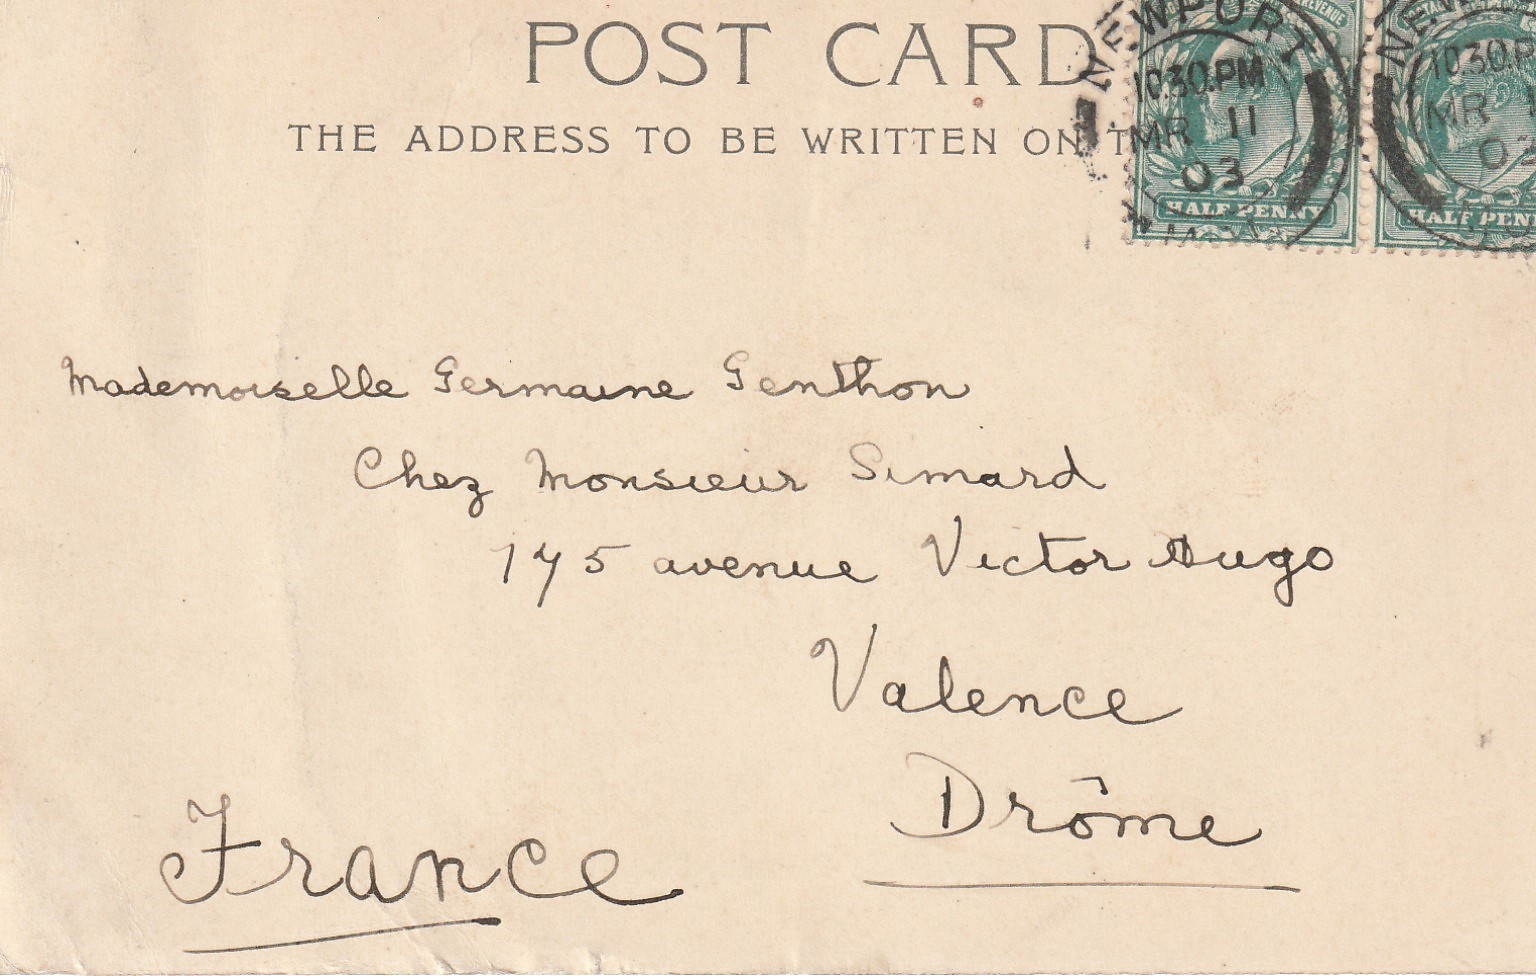 POST CARD
THE ADDRESS TO BE WRITTEN ON
NEWPORT
10.30.PM
MR 11
03
HALF PENNY
10.30.P
MR 1
03
HALF PEN
Mademoiselle Germaine Genthon
Chez Monsieur Simard
175 avenue Victor Hugo
Valence
Drôme
France